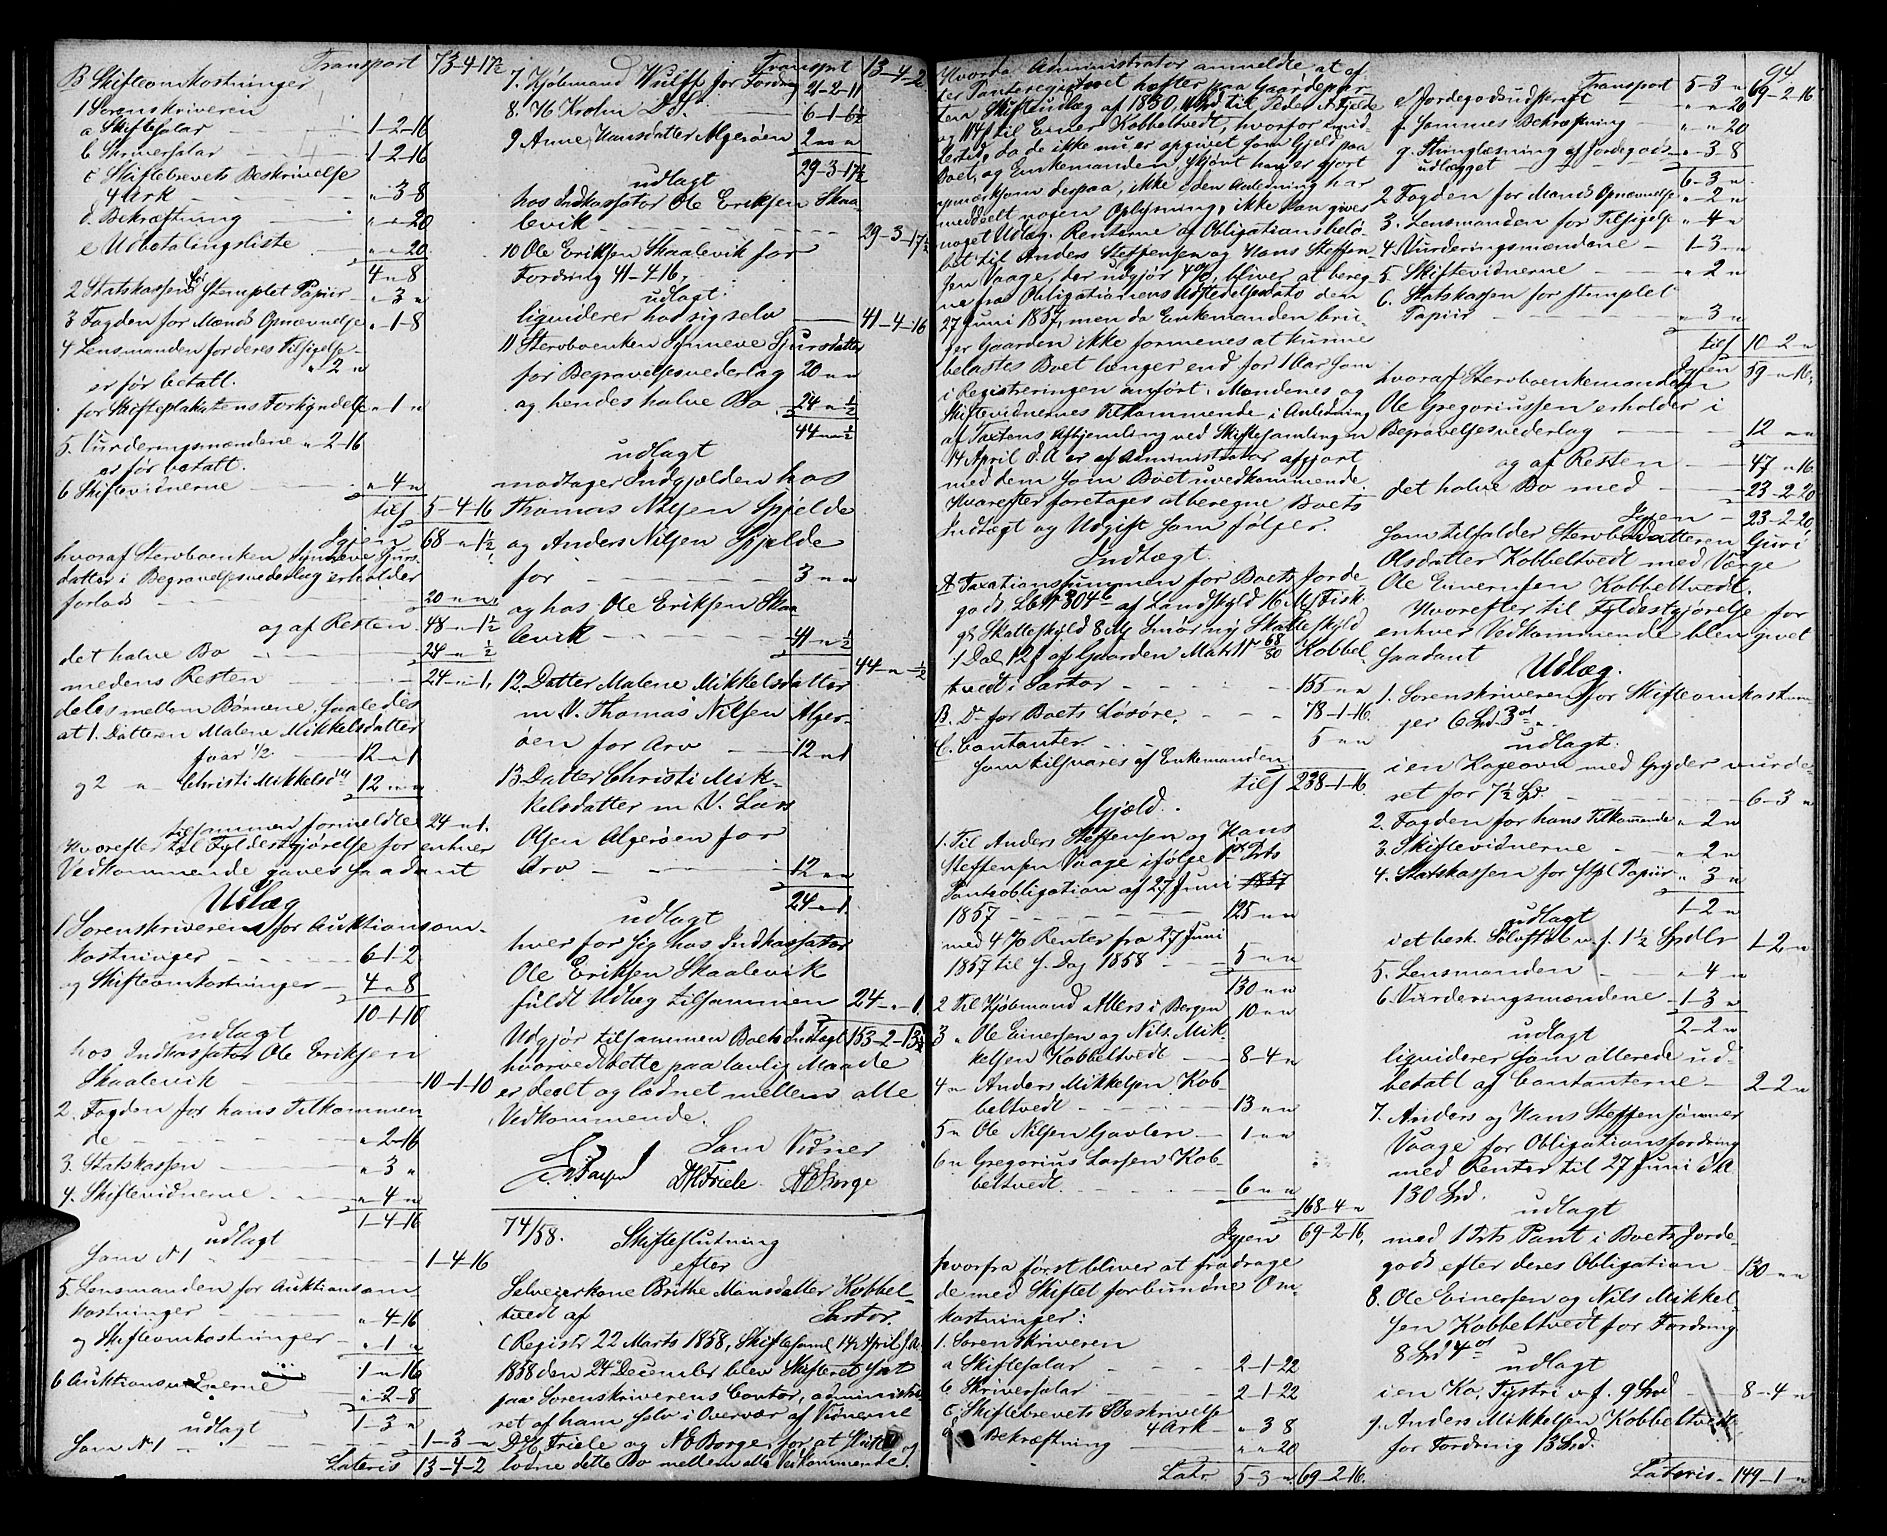 Transport 73-4-17½
B Skifteomkostninger
1 Sorenskriveren
a Skiftesalar 1-2-16
b Skriversalar 1-2-16
c Skiftebrevets Beskrivelse
4 Ark " 3-8
d. Bekræftning " " 20
e Udbetalingsliste " " 20
4 " 8
2 Statskassen for Stemplet Papiir " 3 "
3 Fogden for Mænds Opnævnelse " 1-8
4 Lensmanden for deres Tilsigelse
" 2 "
er før betalt.
for Skifteplakatens Forkyndelse " 1 "
5. Vurderingsmændene " 2-16
er før betalt.
6 Skiftevidnerne " 4 "
tils 5-4-16
Igjen 68 " 1½
hvoraf Stervboenken Synneve Sjurs
datter i Begravelsesvederlag erholder
forlods 20 " "
og af Resten 48 " 1½
det halve Bo 24 " ½
medens Resten 24 " 1
deles mellem Børnene saaledes
at 1. Datteren Malene Mikkelsdatter
faar ½ 12 " 1
og 2 " Christi Mikkelsdtr 12 " "
tilsammen formeldte 24 " 1.
Hvorefter til Fyldestgjørelse for enhver
Vedkommende gaves saadant
Udlæg
1 Sorenskriveren for Auktionsom-
kostninger 6-1-2
og Skifteomkostninger 4 " 8
10-1-10
udlagt
hos Indkassator Ole Eriksen
Skaalevik 10-1-10
2. Fogden for hans Tilkommen
de " 2-16
3. Statskassen " 3 "
4. Skiftevidnerne " 4 "
1-4-16
udlagt
som N 1 1-4-16
5. Lensmanden for Auktionsom
kostninger " 4-16
og Skifteomkostninger " 1 "
1 " 16
6 Auktionsvidnerne " 2-8
1-3 "
udlagt
som N 1 1-3 "
Lateris 13-4-2
Transport 13-4-2
7. Kjøbmand Wulff for Fordring 21-2-11
8. H Krohn Do 6-1-6½
9 Anne Hansdatter Algerøen 2 " "
29-3-17½
udlagt
hos Indkassator Ole Eriksen Skaa
levik 29-3-17½
10 Ole Eriksen Skaalevik for
Fordring 41-4-16.
udlagt.
liquiderer hos sig selv 41-4-16
11 Stervboenken Synneve Sjursdatter
for Begravelsesvederlag 20 " "
og hendes halve Bo 24 " ½
44 " ½
udlagt
modtager Indgjælden hos
Thomas Nilsen Gjelde
og Anders Nilsen Gjelde
for 3 " "
og hos Ole Eriksen Skaa
levik 41 " ½
44 " ½
12. Datter Malene Mikkelsdatter
m V. Thomas Nilsen Alger-
øen for Arv 12 " 1
13 Datter Christi Mik-
kelsdatter m V. Lars
Olsen Algerøen for
Arv 12 " "
24 " 1
udlagt
hver for sig hos Indkassator
Ole Eriksen Skaalevik
fuldt Udlæg tilsammen 24 " 1
Udgjør tilsammen Boets Indtægt 153-2-13½
hvorved dette paa lovlig Maade
er deelt og lodnet mellem alle
Vedkommende.
Som Vidner
DHFriele. NE Borge
74/58. Skifteslutning
efter
Selveierkone Brithe Monsdatter Kobbel-
tvedt af Sartor.
(Registr 22 Marts 1858, Skiftesaml 14 April s. A.
1858 den 24 December blev Skifteret sat
paa Sorenskriverens Contor, administre
ret af ham selv i Overvær af Vidnerne
DH Friele og NE Borge, for at slutte og
lodne dette Bo mellem alle Vedkommende.
Hvorda Administrator anmeldte at ef
ter Panteregistret hefter paa Gaardepar
ten Skifteudlæg af 1830 til Peder Nilsen Gjelde
og til Einer Kobbeltvedt, hvorfor imid
lertid, da de ikke nu er opgivet som Gjeld paa
Boet, og Enkemanden skjønt han er gjort
opmærksom derpaa, ikke i den Anledning har
meddeelt nogen Oplysning, ikke kan gives
noget Udlæg. Renterne af Obligationsbelø-
bet til Anders Steffensen og Hans Steffen
sen Vaage, der udgjør 4%, bliver at bereg
ne fra Obligationens Udstedelsesdato den
27 Juni 1857, men da Enkemanden bru-
ger Gaarden ikke formenes at kunne
belastes Boet længer end for 1 Aar som
i Registreringen anført. Mændenes og
Skiftevidnernes Tilkommende i Anledning
af Taxtens Afhjemling ved Skiftesamlingen
14 April d. A er af Administrator afgjort
med dem som Boet uvedkommende.
Hvorefter foretages at beregne Boets
Indtægt og Udgift som følger.
Indtægt.
A. Taxationssummen for Boets Jorde
gods Lb N 304b af Landskyld 16 Mk Fisk
gl Skatteskyld 8 Mk Smør ny Skatteskyld
1 Dal. 12 s af Gaarden Mats N 68/80 Kobbel
tvedt i Sartor 155 " "
B. Do for Boets Løsøre, 78-1-16.
C. Contanter 5 " "
som tilsvares af Enkemanden
tils 238-1-16.
Gjæld.
1. Til Anders Steffensen og Hans
Steffensen Vaage ifølge 1ste Prts
Pantobligation af 27 Juni
1857 125 " "
med 4% Renter fra 27 Juni
1857 til s. Dag 1858 5 " "
130 " "
2 Til Kjøbmand Allers i Bergen 10 " "
3 " Ole Einersen og Nils Mik-
kelsen Kobbeltvedt 8-4 "
4 " Anders Mikkelsen Kob-
beltvedt 13 " "
5 " Ole Nilsen Gavlen 1 " "
6 " Gregorius Larsen Kob-
beltvedt 6 " "
168-4 "
Igjen 69-2-16,
hvorfra først bliver at fradrage
de med Skiftet forbundne Om
kostninger:
1. Sorenskriveren
a Skiftesalar 2-1-22
b Skriversalar 2-1-22
c. Skiftebrevets Beskrivelse
4 Ark " 3 8
d Bekræftning " " 20
Latr 5-3 " 69-2-16.
94
Transport 5-3 " 69-2-16
e Jordegodsudskrift " " 20
f Sammes Bekræftning " " 20
g. Thinglæsning af Jordegods-
udlægget " 3 8
6-3 "
2 Fogden for Mænds Opnævnelse " 2 "
3. Lensmanden for Tilsigelse " 4 "
4 Vurderingsmændene 1-3 "
5 Skiftevidnerne " 2 "
6. Statskassen for stemplet
Papiir " 3 "
tils 10-2 "
Igjen 59 " 16,
hvoraf Stervboenkemanden
Ole Gregoriussen erholder i
Begravelsesvederlag 12 " "
og af Resten 47 " 16
det halve Bo med 23-2-20
Igjen 23-2-20,
som tilfalder Stervbodatteren Guri
Olsdatter Kobbeltvedt med Værge
Ole Einersen Kobbeltvedt.
Hvorefter til Fyldestgjørelse for
enhver Vedkommende blev givet
saadant Udlæg.
1. Sorenskriveren for Skifteomkostnin
ger 6 Spd. 3 ort
udlagt.
i en Kageovn med Gryder vurde-
ret for 7½ Spd. 6-3 "
2. Fogden for hans Tilkommende " 2 "
3. Skiftevidnerne " 2 "
4. Statskassen for stpl Papiir " 3 "
1-2 "
udlagt
i et besk. Sølvstøb v. f. 1½ Spdlr 1-2 "
5. Lensmanden " 4 "
6. Vurderingsmændene 1-3 "
2-2 "
udlagt
liquiderer som allerede ud-
betalt af Contanterne 2-2 "
7. Anders og Hans Steffensønner
Vaage for Obligationsfordring
med Renter til 27 Juni d. A.
130 Spd.
udlagt
med 1 Prts Pant i Boets Jorde-
gods efter deres Obligation 130 " "
8. Ole Einersen og Nils Mikkel-
sen Kobbeltvedt for Fordring
8 Spd 4 ort
udlagt
i en Ko, Tystri v. f. 9 Spd 8-4 "
9. Anders Mikkelsen Kobbeltvedt
for Fordring 13 Spd.
Lateris 149-1 "